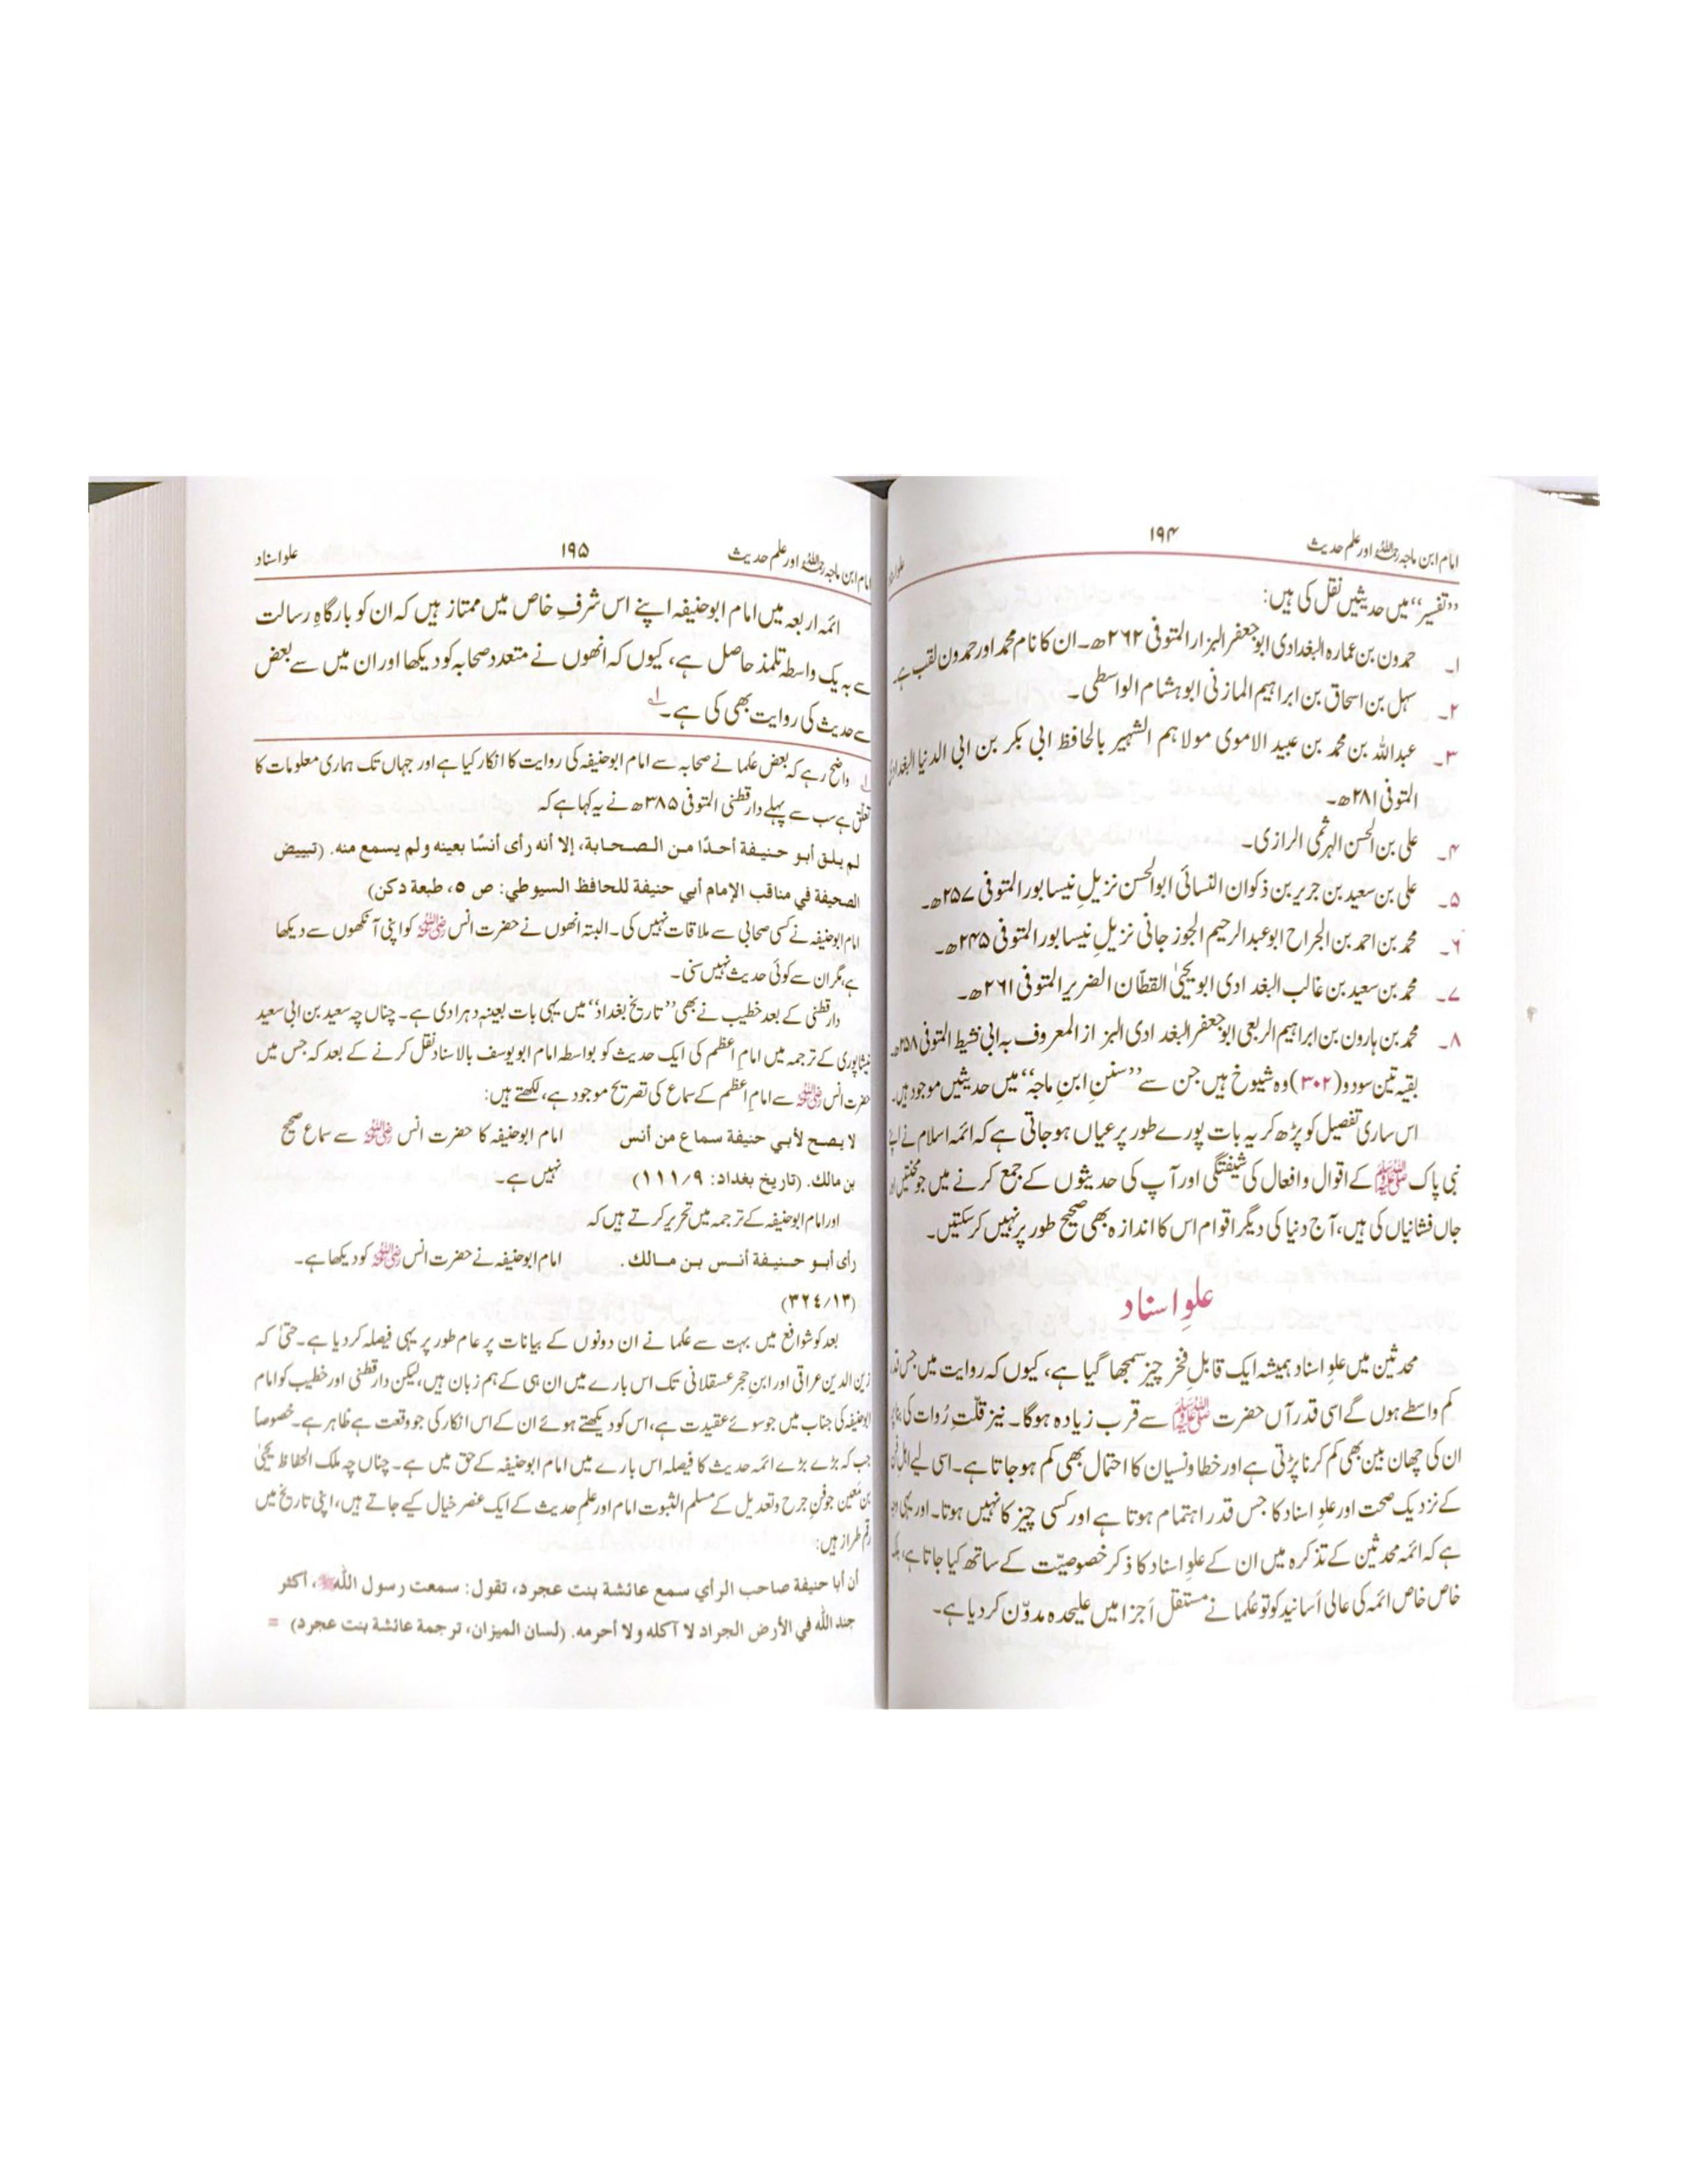 امام ابن ماجہ رحمہ اللہ اور علم حدیث ۱۹۴
“تفسیر” میں حدیثیں نقل کی ہیں:
۱۔ حمدون بن عمارہ البغدادی ابوجعفر البزار المتوفی ۲۶۲ھ۔ ان کا نام محمد اور حمدون لقب ہے۔
۲۔ سہل بن اسحاق بن ابراہیم المازنی ابو ہشام الواسطی۔
۳۔ عبداللہ بن محمد بن عبید الاموی مولاہم الشہیر بالحافظ ابی بکر بن ابی الدنیا البغدادی
المتوفی ۲۸۱ھ۔
۴۔ علی بن الحسن الہرثمی الرازی۔
۵۔ علی بن سعید بن جریر بن ذکوان النسائی ابوالحسن نزیلِ نیسابور المتوفی ۲۵۷ھ۔
۶۔ محمد بن احمد بن الجراح ابوعبدالرحیم الجوزجانی نزیلِ نیسابور المتوفی ۲۴۵ھ۔
۷۔ محمد بن سعید بن غالب البغدادی ابو یحییٰ القطّان الضریر المتوفی ۲۶۱ھ۔
۸۔ محمد بن ہارون بن ابراہیم الربعی ابوجعفر البغدادی البزاز المعروف بہ ابی نشیط المتوفی ۲۵۸ھ۔
بقیہ تین سو دو (۳۰۲) وہ شیوخ ہیں جن سے “سننِ ابنِ ماجہ” میں حدیثیں موجود ہیں۔
اس ساری تفصیل کو پڑھ کر یہ بات پورے طور پر عیاں ہوجاتی ہے کہ ائمہ اسلام نے اپنے
نبی پاک ﷺ کے اقوال وافعال کی شیفتگی اور آپ کی حدیثوں کے جمع کرنے میں جو محنتیں اور
جاں فشانیاں کی ہیں، آج دنیا کی دیگر اقوام اس کا اندازہ بھی صحیح طور پر نہیں کرسکتیں۔
علوِ اسناد
محدثین میں علوِ اسناد ہمیشہ ایک قابلِ فخر چیز سمجھا گیا ہے، کیوں کہ روایت میں جس قدر
کم واسطے ہوں گے اسی قدر آں حضرت ﷺ سے قرب زیادہ ہوگا۔ نیز قلّتِ رُوات کی بنا پر
ان کی چھان بین بھی کم کرنا پڑتی ہے اور خطا ونسیان کا احتمال بھی کم ہوجاتا ہے۔ اسی لیے اہلِ فن
کے نزدیک صحت اور علوِ اسناد کا جس قدر اہتمام ہوتا ہے اور کسی چیز کا نہیں ہوتا۔ اور یہی وجہ
ہے کہ ائمہ محدثین کے تذکرہ میں ان کے علوِ اسناد کا ذکر خصوصیّت کے ساتھ کیا جاتا ہے، بلکہ
خاص خاص ائمہ کی عالی اَسانید کو تو عُلما نے مستقل اَجزا میں علیحدہ مدوّن کردیا ہے۔
امام ابن ماجہ رحمہ اللہ اور علم حدیث ۱۹۵ علوِ اسناد
ائمہ اربعہ میں امام ابوحنیفہ اپنے اس شرفِ خاص میں ممتاز ہیں کہ ان کو بارگاہِ رسالت
سے بہ یک واسطہ تلمذ حاصل ہے، کیوں کہ انھوں نے متعدد صحابہ کو دیکھا اور ان میں سے بعض
سے حدیث کی روایت بھی کی ہے۔ ۱؎
۱؎ واضح رہے کہ بعض عُلما نے صحابہ سے امام ابوحنیفہ کی روایت کا انکار کیا ہے اور جہاں تک ہماری معلومات کا
تعلق ہے سب سے پہلے دارقطنی المتوفی ۳۸۵ھ نے یہ کہا ہے کہ
لم يلق أبو حنيفة أحدًا من الصحابة، إلا أنه رأى أنسًا بعينه ولم يسمع منه. (تبييض
الصحيفة في مناقب الإمام أبي حنيفة للحافظ السيوطي: ص ٥، طبعة دكن)
امام ابوحنیفہ نے کسی صحابی سے ملاقات نہیں کی۔ البتہ انھوں نے حضرت انس رضی اللہ عنہ کو اپنی آنکھوں سے دیکھا
ہے، مگر ان سے کوئی حدیث نہیں سنی۔
دارقطنی کے بعد خطیب نے بھی “تاریخ بغداد” میں یہی بات بعینہٖ دہرا دی ہے۔ چناں چہ سعید بن ابی سعید
نیشاپوری کے ترجمہ میں امامِ اعظم کی ایک حدیث کو بواسطہ امام ابویوسف بالاسناد نقل کرنے کے بعد کہ جس میں
حضرت انس رضی اللہ عنہ سے امامِ اعظم کے سماع کی تصریح موجود ہے، لکھتے ہیں:
لا يصح لأبي حنيفة سماع من أنس امام ابوحنیفہ کا حضرت انس رضی اللہ عنہ سے سماع صحیح
بن مالك. (تاريخ بغداد: ٩/١١١) نہیں ہے۔
اور امام ابوحنیفہ کے ترجمہ میں تحریر کرتے ہیں کہ
رأى أبو حنيفة أنس بن مالك. امام ابوحنیفہ نے حضرت انس رضی اللہ عنہ کو دیکھا ہے۔
(١٣/٣٢٤)
بعد کو شوافع میں بہت سے عُلما نے ان دونوں کے بیانات پر عام طور پر یہی فیصلہ کردیا ہے۔ حتیٰ کہ
زین الدین عراقی اور ابنِ حجر عسقلانی تک اس بارے میں ان ہی کے ہم زبان ہیں، لیکن دارقطنی اور خطیب کو امام
ابوحنیفہ کی جناب میں جو سوئے عقیدت ہے، اس کو دیکھتے ہوئے ان کے اس انکار کی جو وقعت ہے ظاہر ہے۔ خصوصاً
جب کہ بڑے بڑے ائمہ حدیث کا فیصلہ اس بارے میں امام ابوحنیفہ کے حق میں ہے۔ چناں چہ ملک الحفاظ یحییٰ
بن مَعین جو فنِ جرح وتعدیل کے مسلم الثبوت امام اور علمِ حدیث کے ایک عنصر خیال کیے جاتے ہیں، اپنی تاریخ میں
رقم طراز ہیں:
أن أبا حنيفة صاحب الرأي سمع عائشة بنت عجرد، تقول: سمعت رسول الله ﷺ، أكثر
جند الله في الأرض الجراد لا آكله ولا أحرمه. (لسان الميزان، ترجمة عائشة بنت عجرد) =